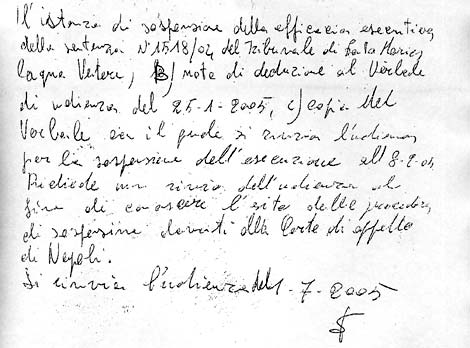 l'istanza di sospensione della efficacia esecutiva
della sentenza N° 1518/04 del Tribunale di Santa Maria
Capua Vetere, B) note di deduzione al Verbale
di udienza del 25-1-2005, c) copia del
Verbale con il quale si rinvia l'udienza
per la sospensione dell'esecuzione all'8-2-05
Richiede un rinvio dell'udienza al
fine di conoscere l'esito della procedura
di sospensione davanti alla Corte di appello
di Napoli.
Si rinvia l'udienza del 1-7-2005